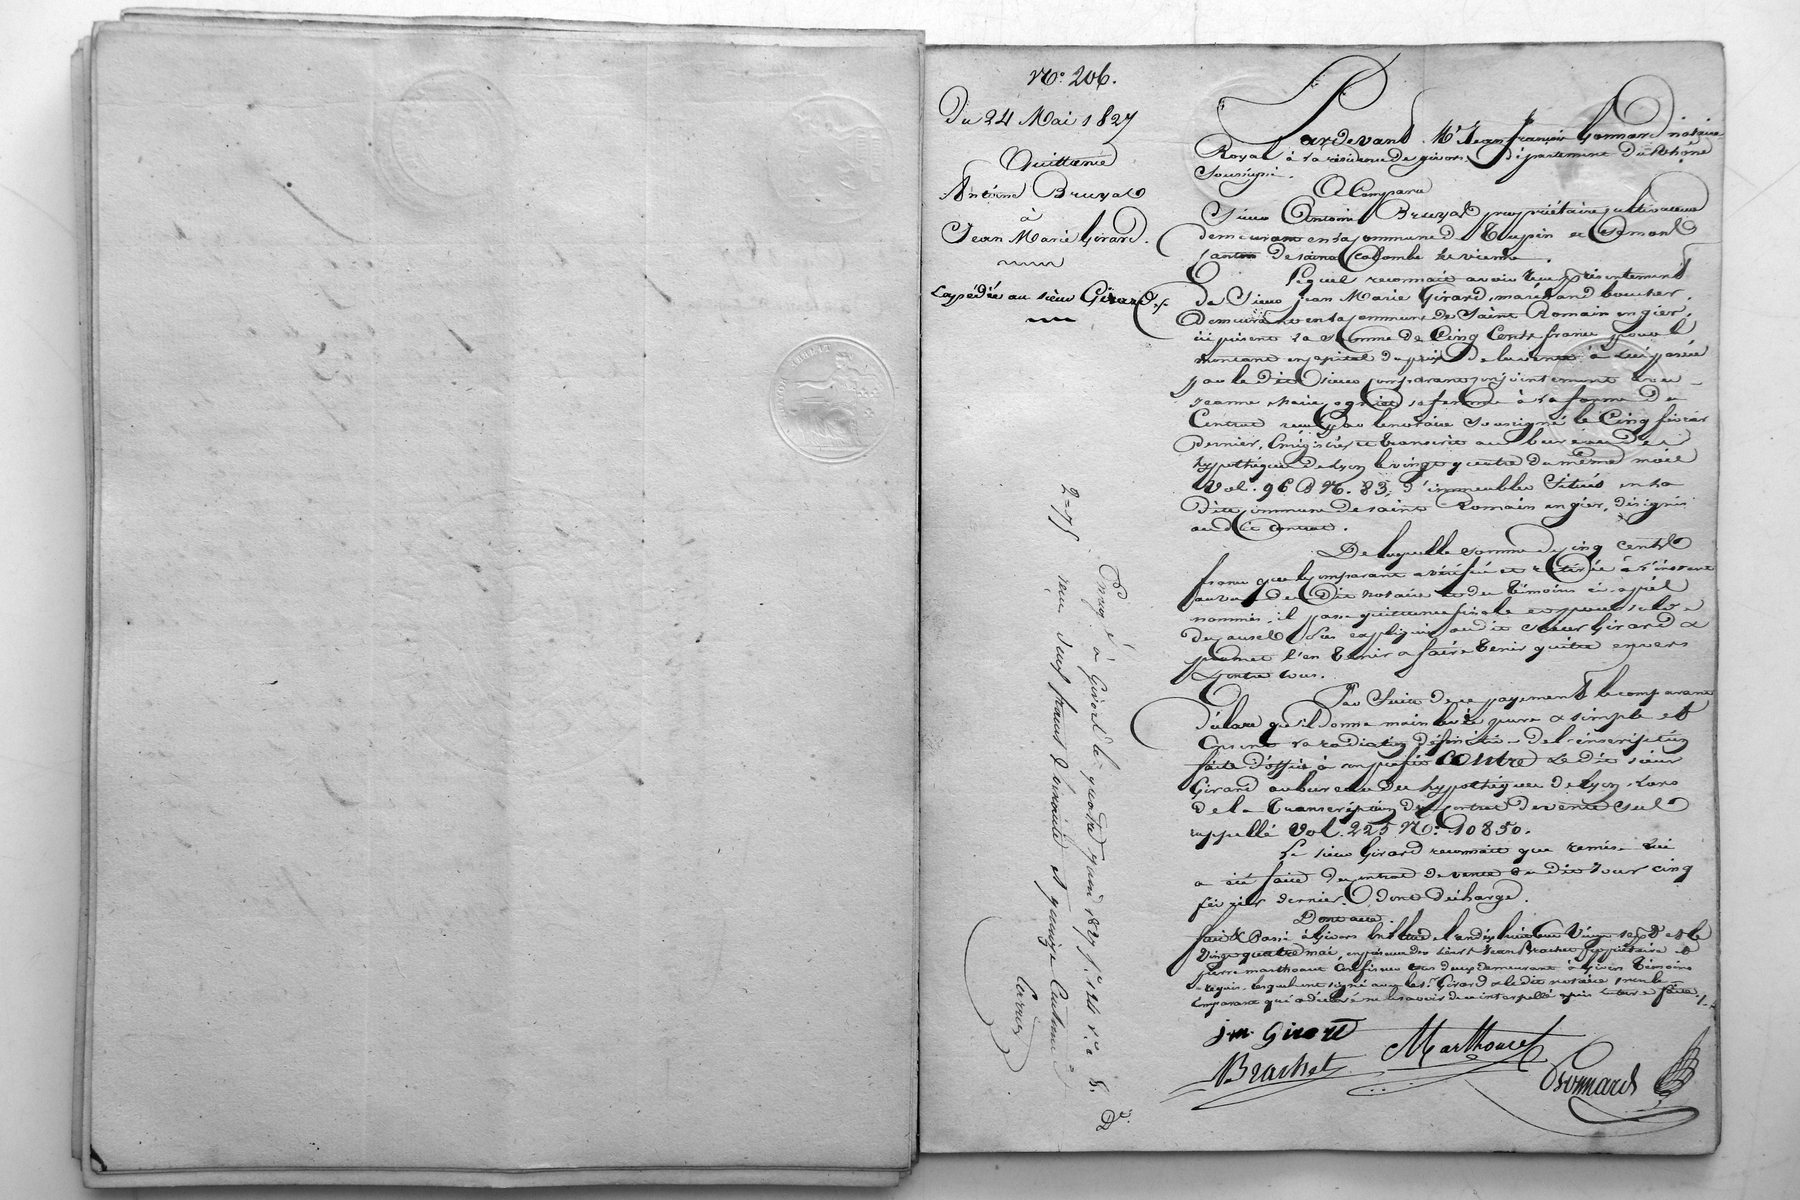 N° 206.
Du 24 Mai 1827
Quittance
Antoine Bruyat
à
Jean Marie Girard.
Expédiée au sieur Girard
Pardevant Me Jean François Gonnard notaire
Royal à la résidence de givors, Département du Rhône
Soussigné.
A Comparu
Sieur Antoine Bruyat propriétaire cultivateur
demeurant en la commune de Tupin et Semons
canton de sainte Colombe les vienne.
Lequel reconnait avoir reçu présentement
de Sieur Jean Marie Girard, marchand boucher,
Demeurant en la commune de Saint Romain en gier,
ici présent la Somme de Cinq Cents francs pour le
montant en capital du prix de la vente à lui passée
par le dit Sieur comparant conjointement avec
Jeanne Marie sa femme à la forme du
Contrat reçu par le notaire Soussigné le Cinq février
dernier, Enregistré et transcrit au bureau des
hypothèques de Lyon le vingt quatre du même mois
Vol. 96 N. 83, d'immeubles Situés en la
dite commune de saint Romain en gier, désignés
au dit contrat.
De laquelle somme de cinq cents
francs que le comparant a vérifiée et retirée à l'instant
au vu du dit notaire et des témoins ci-après
nommés, il passe quittance finale et pour solde
des causes Sus expliquées au dit sieur Girard &
promet l'en tenir & faire tenir quitte envers
& contre tous.
Par Suite de ce payement le comparant
déclare qu'il donne main levée pure & simple et
Consent la radiation définitive de l'inscription
faite d'office à son profit contre le dit sieur
Girard au bureau des hypothèques de Lyon, Lors
de la transcription du contrat de vente Sus
rappellé Vol. 225 N° 10850.
Le sieur Girard reconnait que remise lui
a été faite du contrat de vente du dit jour cinq
février dernier. dont décharge.
Dont acte
fait & Passé à Givors L'an mil huit cent Vingt sept et le
Vingt quatre mai, en présence des sieurs Jean Brachet propriétaire et
pierre marthouret Confiseur tous deux demeurant à Givors témoins
requis. lesquels ont signé avec le Sr Girard & le dit notaire non le
Comparant qui a déclaré ne le savoir de ce interpellé après lecture faite.
j.m. Girard
Brachet Marthouret
Gonnard
Enreg. é à Givors le quatre juin 1827 f° 124 r° c. 8.
2=75 reçu deux francs & dixième et quinze Centimes